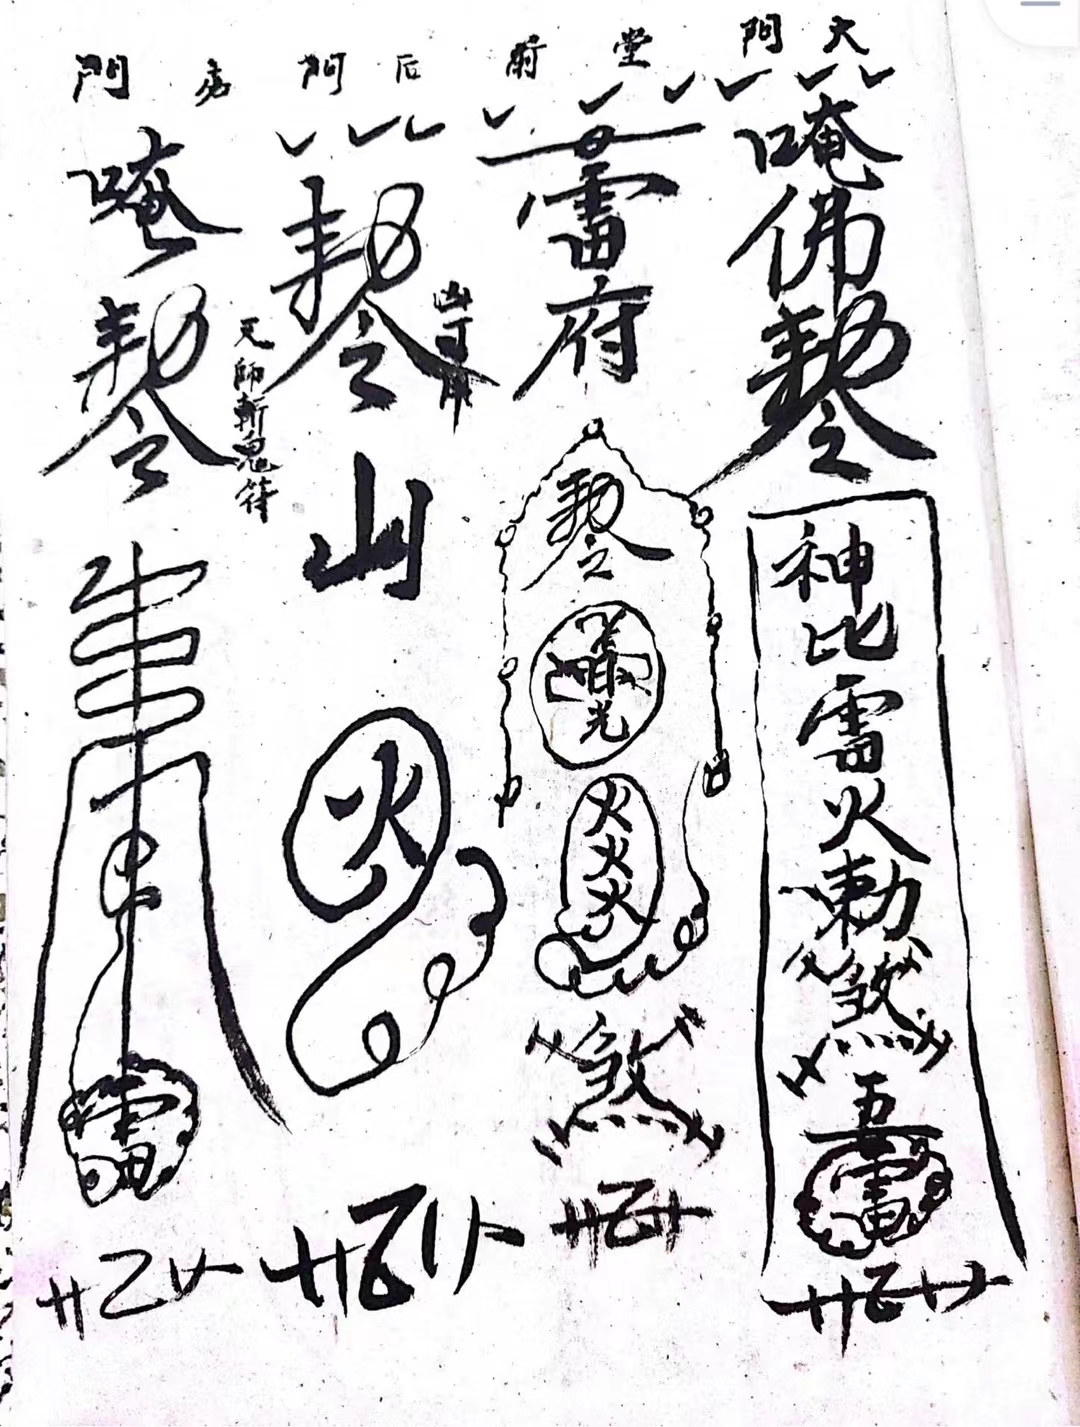 大門
唵佛勅令
神比雷火勅煞
五雷
堂前
雷府
勅令
光
火火火
煞
后門
勅令
山
火
天師斬鬼符
房門
唵勅令
雷